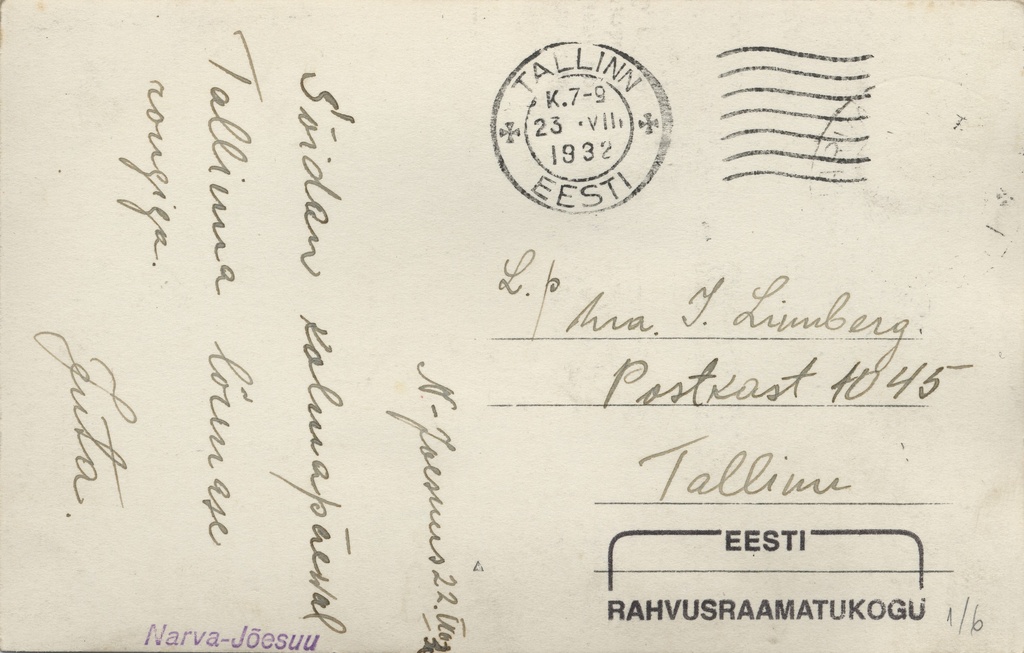 TALLINN
K.7-9
23 VII
1932
EESTI
N.-Joesuus 22.
Sõidan kolmapäeval
Tallinna lõunase
rongiga.
Juta.
L. p
hra. J. Linnberg.
Postkast 1045
Tallinn
EESTI
RAHVUSRAAMATUKOGU
1/6
Narva-Jõesuu